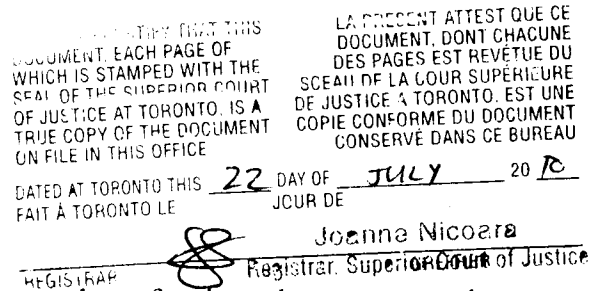 THAT THIS
DOCUMENT, EACH PAGE OF
WHICH IS STAMPED WITH THE
SEAL OF THE SUPERIOR COURT
OF JUSTICE AT TORONTO, IS A
TRUE COPY OF THE DOCUMENT
ON FILE IN THIS OFFICE
LA PRESENT ATTEST QUE CE
DOCUMENT, DONT CHACUNE
DES PAGES EST REVÊTUE DU
SCEAU DE LA COUR SUPÉRIEURE
DE JUSTICE À TORONTO, EST UNE
COPIE CONFORME DU DOCUMENT
CONSERVÉ DANS CE BUREAU
DATED AT TORONTO THIS 22 DAY OF JULY 20 10
FAIT À TORONTO LE JOUR DE
Joanna Nicoara
REGISTRAR Registrar, Superior Court of Justice